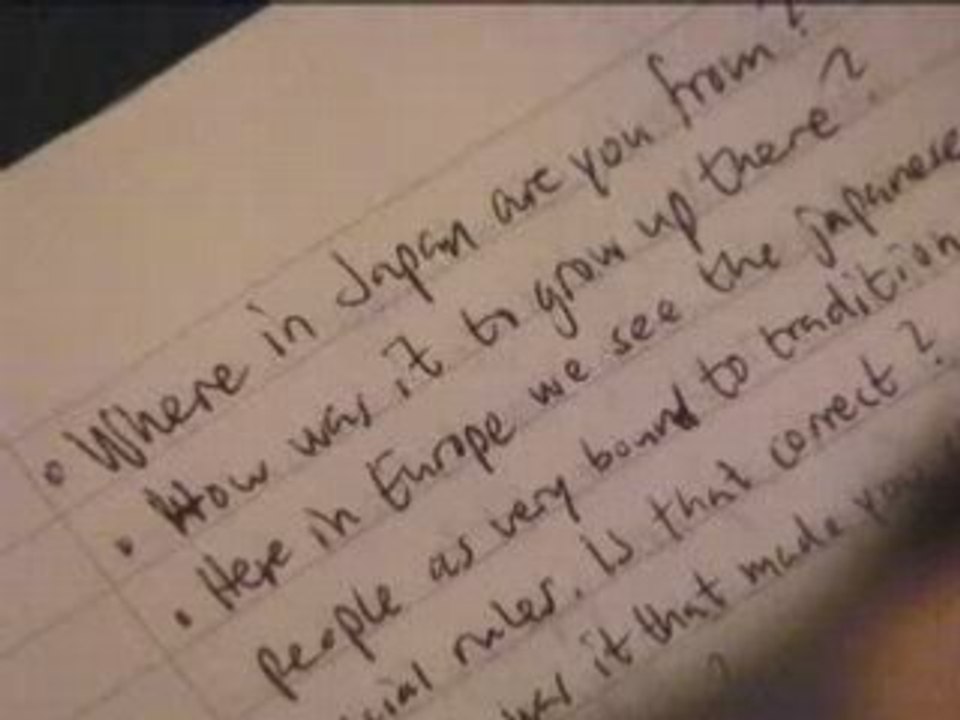 Where in Japan are you from?
How was it to grow up there?
Here in Europe we see the japanese
people as very bound to tradition
rules. Is that correct?
it that made you
?